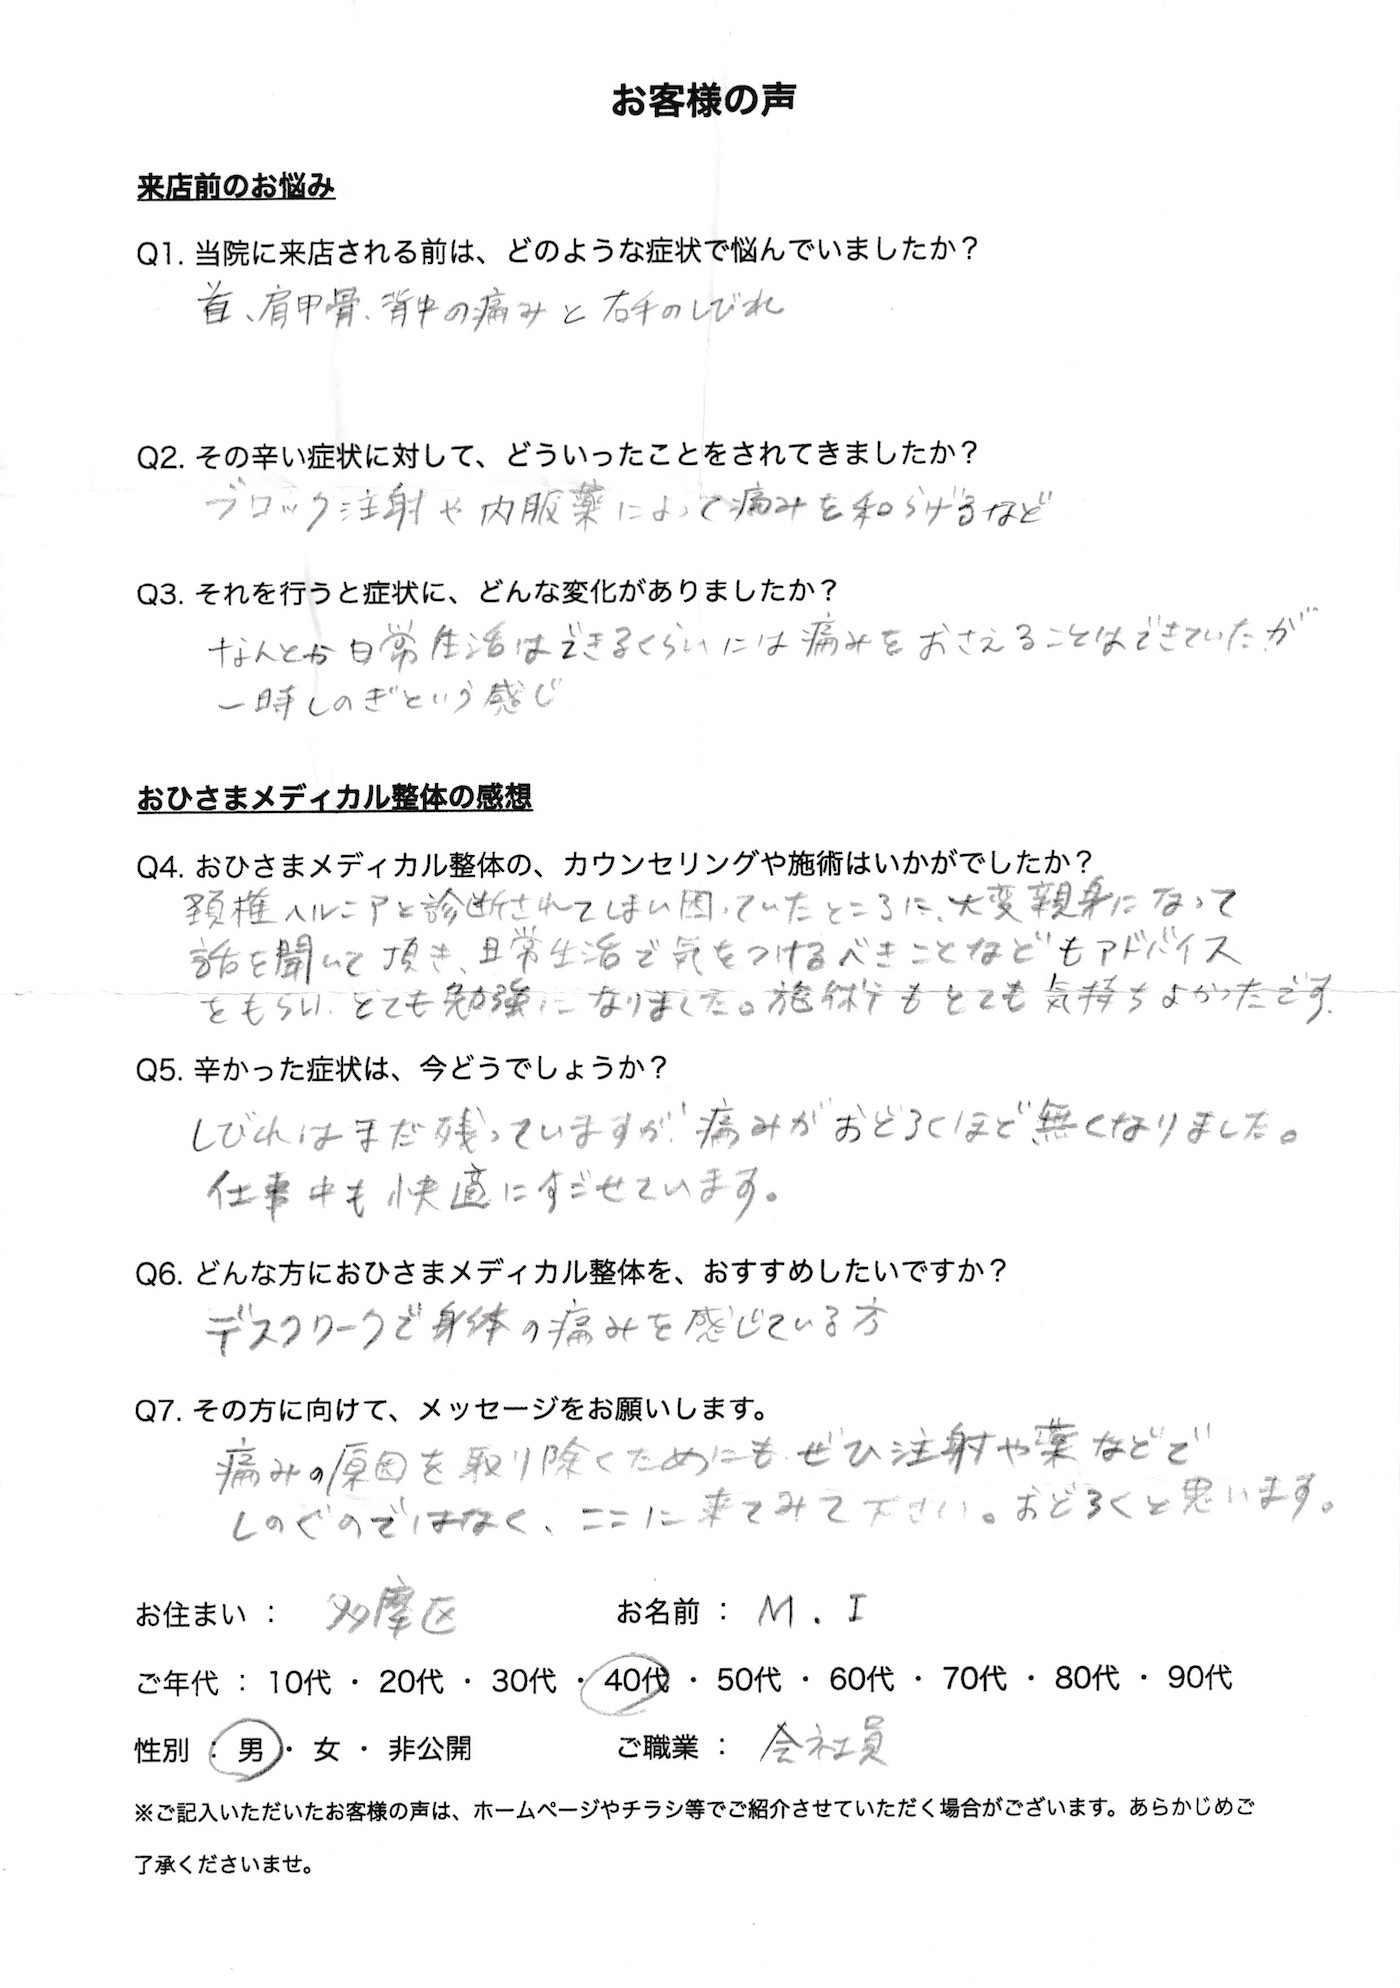 お客様の声
来店前のお悩み
Q1. 当院に来店される前は、どのような症状で悩んでいましたか？
首、肩甲骨、背中の痛みと右手のしびれ
Q2. その辛い症状に対して、どういったことをされてきましたか？
ブロック注射や内服薬によって痛みを和らげるなど
Q3. それを行うと症状に、どんな変化がありましたか？
なんとか日常生活はできるくらいには痛みをおさえることはできていたが
一時しのぎという感じ
おひさまメディカル整体の感想
Q4. おひさまメディカル整体の、カウンセリングや施術はいかがでしたか？
頚椎ヘルニアと診断されてしまい困っていたところに、大変親身になって
話を聞いて頂き、日常生活で気をつけるべきことなどもアドバイス
をもらい、とても勉強になりました。施術もとても気持ちよかったです。
Q5. 辛かった症状は、今どうでしょうか？
しびれはまだ残っていますが、痛みがおどろくほど無くなりました。
仕事中も快適にすごせています。
Q6. どんな方におひさまメディカル整体を、おすすめしたいですか？
デスクワークで身体の痛みを感じている方
Q7. その方に向けて、メッセージをお願いします。
痛みの原因を取り除くためにも、ぜひ注射や薬などで
しのぐのではなく、ここに来てみて下さい。おどろくと思います。
お住まい ： 多摩区 お名前 ： M . I
ご年代 ： 10代 ・ 20代 ・ 30代 ・ 40代 ・ 50代 ・ 60代 ・ 70代 ・ 80代 ・ 90代
性別 ： 男 ・ 女 ・ 非公開 ご職業 ： 会社員
※ご記入いただいたお客様の声は、ホームページやチラシ等でご紹介させていただく場合がございます。あらかじめご
了承くださいませ。